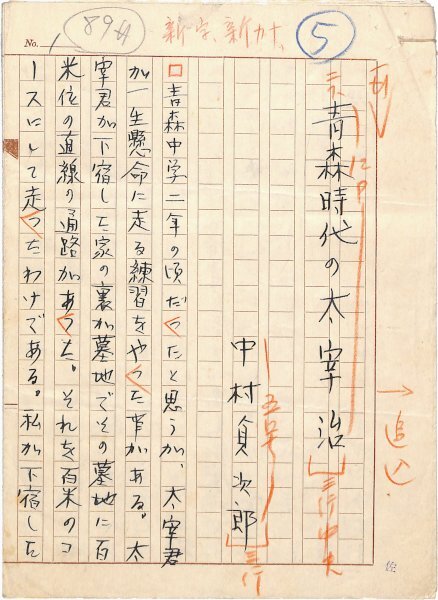 No. 1
89
新字、新カナ、
5
青森時代の太宰治
中村貞次郎
青森中学二年の頃だったと思うが、太宰君
が一生懸命に走る練習をやった事がある。太
宰君が下宿した家の裏が墓地でその墓地に百
米位の直線の通路があった。それを百米のコ
ースにして走ったわけである。私が下宿した
12P
三行中央
五号
三行
→追込